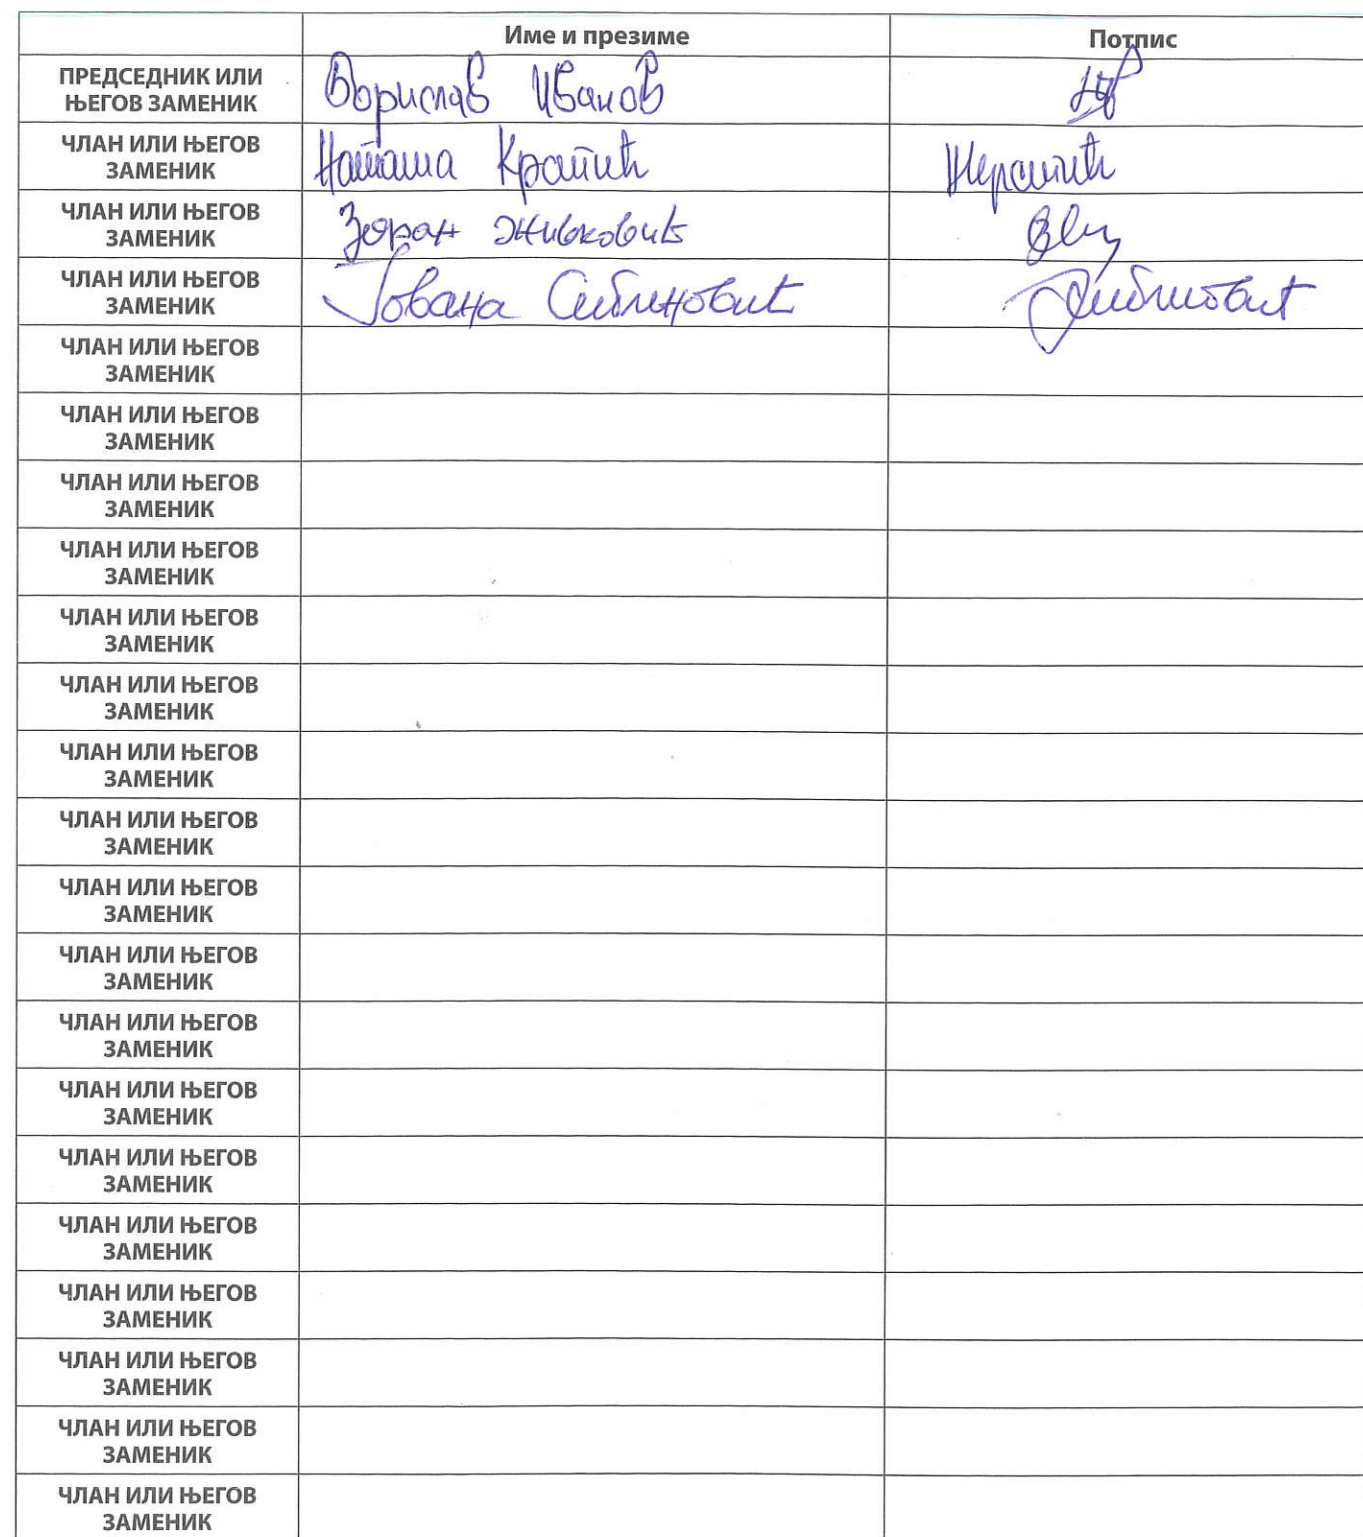 Име и презиме Потпис
ПРЕДСЕДНИК ИЛИ
ЊЕГОВ ЗАМЕНИК
Борислав Иванов
ЧЛАН ИЛИ ЊЕГОВ
ЗАМЕНИК
Наташа Кратић
ЧЛАН ИЛИ ЊЕГОВ
ЗАМЕНИК
Зоран Живковић
ЧЛАН ИЛИ ЊЕГОВ
ЗАМЕНИК
Јована Сиблиновић
ЧЛАН ИЛИ ЊЕГОВ
ЗАМЕНИК
ЧЛАН ИЛИ ЊЕГОВ
ЗАМЕНИК
ЧЛАН ИЛИ ЊЕГОВ
ЗАМЕНИК
ЧЛАН ИЛИ ЊЕГОВ
ЗАМЕНИК
ЧЛАН ИЛИ ЊЕГОВ
ЗАМЕНИК
ЧЛАН ИЛИ ЊЕГОВ
ЗАМЕНИК
ЧЛАН ИЛИ ЊЕГОВ
ЗАМЕНИК
ЧЛАН ИЛИ ЊЕГОВ
ЗАМЕНИК
ЧЛАН ИЛИ ЊЕГОВ
ЗАМЕНИК
ЧЛАН ИЛИ ЊЕГОВ
ЗАМЕНИК
ЧЛАН ИЛИ ЊЕГОВ
ЗАМЕНИК
ЧЛАН ИЛИ ЊЕГОВ
ЗАМЕНИК
ЧЛАН ИЛИ ЊЕГОВ
ЗАМЕНИК
ЧЛАН ИЛИ ЊЕГОВ
ЗАМЕНИК
ЧЛАН ИЛИ ЊЕГОВ
ЗАМЕНИК
ЧЛАН ИЛИ ЊЕГОВ
ЗАМЕНИК
ЧЛАН ИЛИ ЊЕГОВ
ЗАМЕНИК
ЧЛАН ИЛИ ЊЕГОВ
ЗАМЕНИК